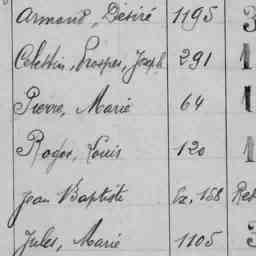 Armand, Désiré 1195 3
Celestin, Prosper, Joseph 291 1
Pierre, Marie 64 1
Roger, Louis 120 1
Jean Baptiste Ex. 168
Jules, Marie 1105 3